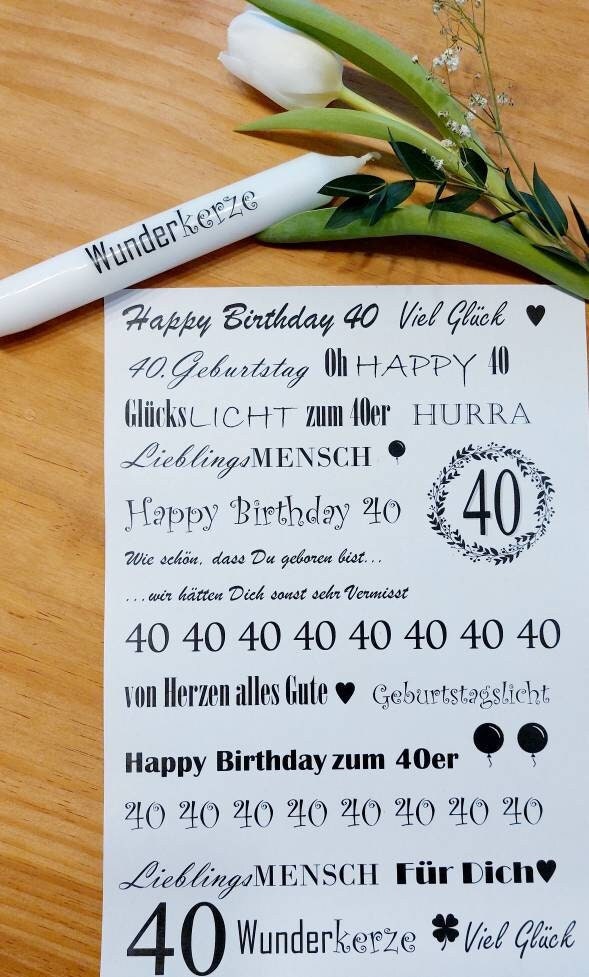 Wunderkerze
Happy Birthday 40 Viel Glück
40. Geburtstag Oh HAPPY 40
GlücksLICHT zum 40er HURRA
LieblingsMENSCH
40
Happy Birthday 40
Wie schön, dass Du geboren bist...
...wir hätten Dich sonst sehr Vermisst
40 40 40 40 40 40 40 40
von Herzen alles Gute Geburtstagslicht
Happy Birthday zum 40er
40 40 40 40 40 40 40 40
LieblingsMENSCH Für Dich
40 Wunderkerze Viel Glück